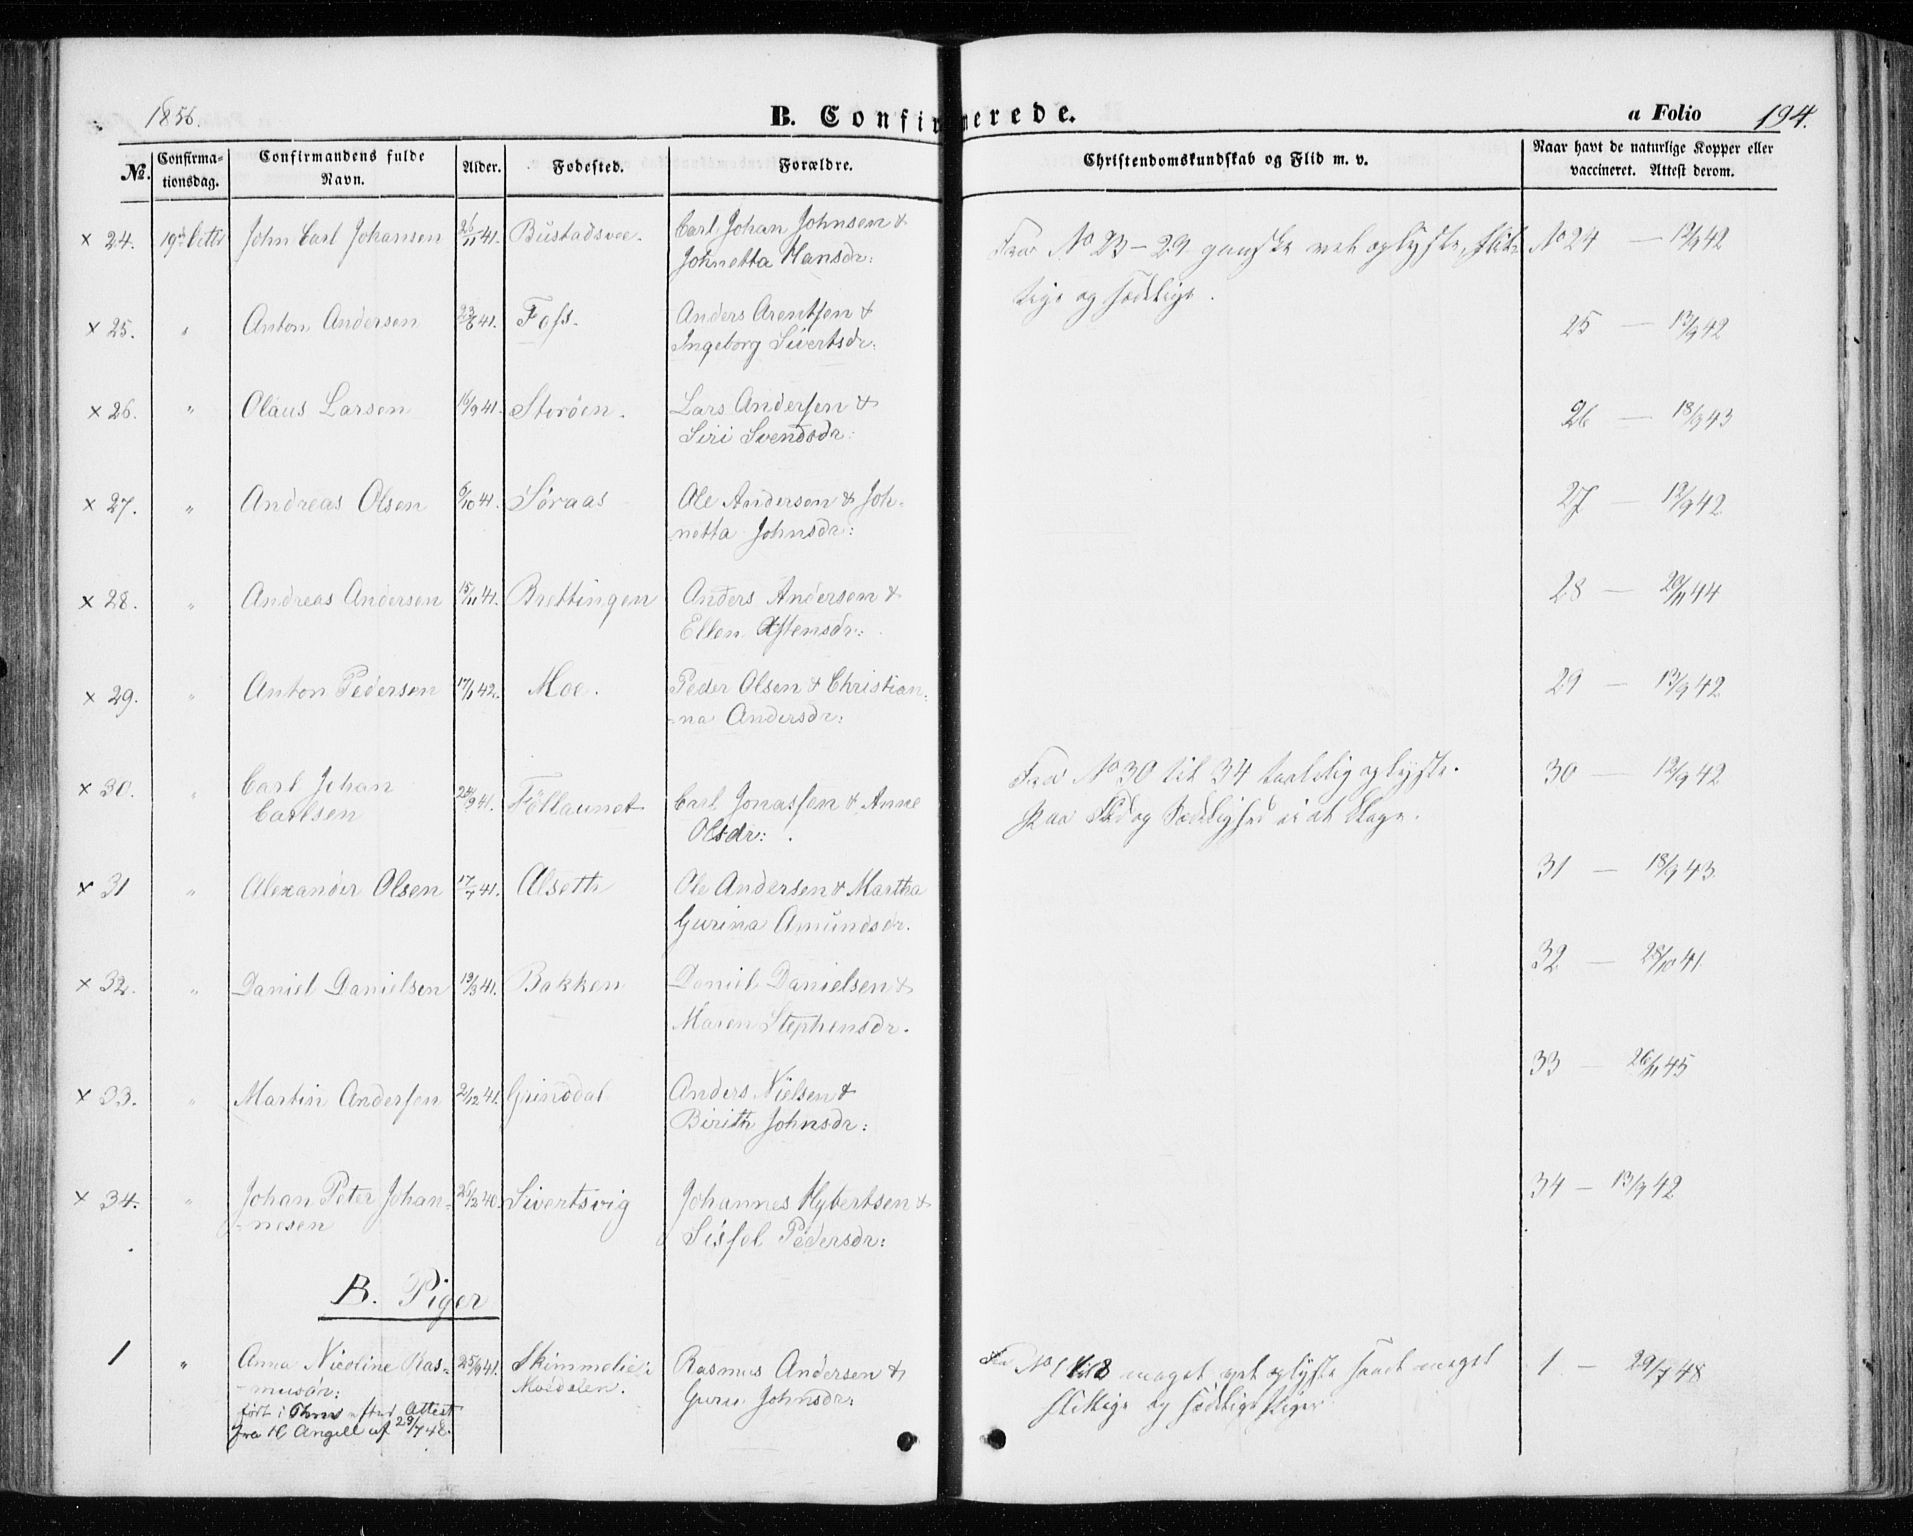 1856.
B. Confirmerede.
a Folio 194.
No.
Confirma-
tionsdag.
Confirmandens fulde
Navn.
Alder.
Fødested.
Forældre.
Christendomskundskab og Flid m. v.
Naar havt de naturlige Kopper eller
vaccineret. Attest derom.
× 24. 19de Octbr John Carl Johansen 26/11 41. Bustadsvee. Carl Johan Johnsen &
Johnetta Hansdr:
Fra No 23 - 29 ganske vel oplyste, flit-
tige og sædelige.
No 24 — 12/9 42
× 25. " Anton Andersen 23/6 41. Foss. Anders Arentsen &
Ingeborg Sivertsdr:
25 — 13/9 42
× 26. " Olaus Larsen 16/9 41. Storöen. Lars Andersen &
Siri Svendsdr:
26 — 18/9 43
× 27. " Andreas Olsen 6/10 41. Söraas Ole Andersen & Joh-
netta Johnsdr:
27 — 12/9 42
× 28. " Andreas Andersen 15/11 41. Brettingen Anders Andersen &
Ellen Estensdr:
28 — 20/11 44
× 29. " Anton Pedersen 17/1 42. Moe. Peder Olsen & Christian-
-na Andersdr:
29 — 13/9 42
× 30. " Carl Johan
Carlsen
24/9 41. Föllaunet Carl Jonassen & Anne
Olsdr:
Fra No 30 til 34 taalelig oplyste.
Paa Flid og Sædelighed ei at klage.
30 — 12/9 42
× 31 " Alexander Olsen 17/7 41. Alseth Ole Andersen & Martha
Gurina Amundsdr.
31 — 18/9 43
× 32. " Daniel Danielsen 19/3 41. Bakken Daniel Danielsen &
Maren Stephensdr.
32 — 28/10 41.
× 33. " Martin Andersen 2/12 41. Grinddal Anders Nielsen &
Birith Johnsdr:
33 — 26/11 45
× 34. " Johan Peter Johan-
-nesen
26/12 40. Sivertsvig Johannes Hybertsen &
Sissel Pedersdr:
34 — 13/9 42
B. Piger
1 " Anna Nicoline Ras-
-musdr:
25/9 41. Skimmelie i
Moldalen.
Rasmus Andersen &
Guru Johnsdr:
Fra No 1 til 8 meget vel oplyste samt meget
flittige og sædelige Piger
1 — 29/7 48
ført i efter Attest
fra H Angell af 29/7 48.